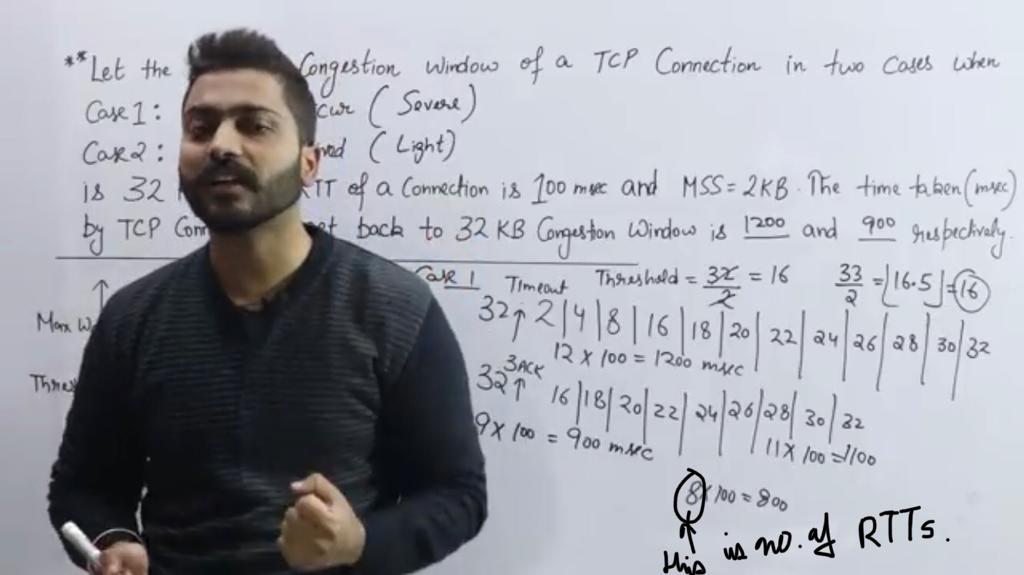 **Let the Congestion window of a TCP Connection in two cases when
Case 1: cur (Severe)
Case 2: (Light)
is 32 of a Connection is 100 msec and MSS = 2KB. The time taken (msec)
by TCP back to 32 KB Congestion Window is 1200 and 900 respectively.
Case 1 Timeout Threshold = 32/2 = 16 33/2 = ⌊16.5⌋ = 16
Max
32↑ 2|4|8|16|18|20|22|24|26|28|30|32
12 × 100 = 1200 msec
3ACK
32↑ 16|18|20|22|24|26|28|30|32
9 × 100 = 900 msec
11 × 100 = 1100
8 × 100 = 800
↑
this is no. of RTTs.